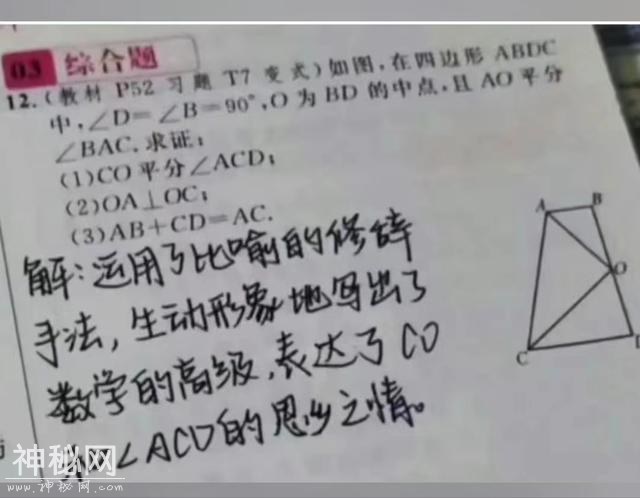 03 综合题
12.(教材 P52 习题 T7 变式)如图,在四边形 ABDC
中,∠D=∠B=90°,O 为 BD 的中点,且 AO 平分
∠BAC.求证:
(1)CO 平分∠ACD;
(2)OA⊥OC;
(3)AB+CD=AC.
解:运用了比喻的修辞
手法,生动形象地写出了
数学的高级,表达了CO
∠ACD的思乡之情。
A
B
O
C
神秘网
www.神秘网.com